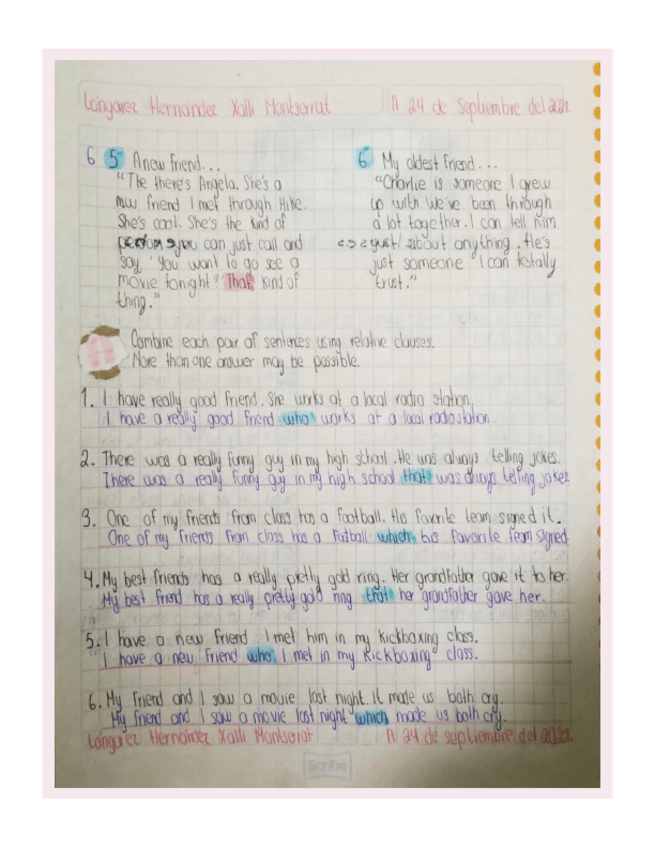 Longarez Hernández Xalli Montserrat
A 24 de Septiembre del 2021.
6 5 A new friend...
"The there's Angela. She's a
new friend I met through Hike.
She's cool. She's the kind of
person you can just call and
say 'You want to go see a
movie tonight? That kind of
thing."
6 My oldest friend...
"Charlie is someone I grew
up with. We've been through
a lot together. I can tell him
just about anything. He's
just someone I can totally
trust."
Combine each pair of sentences using relative clauses.
More than one answer may be possible.
1. I have really good friend. She works at a local radio station.
I have a really good friend who works at a local radio station.
2. There was a really funny guy in my high school. He was always telling jokes.
There was a really funny guy in my high school that was always telling jokes
3. One of my friends from class has a football. His favorite team signed it.
One of my friends from class has a football which his favorite team signed
4. My best friends has a really pretty gold ring. Her grandfather gave it to her.
My best friend has a really pretty gold ring that her grandfather gave her.
5. I have a new friend I met him in my kickboxing class.
I have a new friend who I met in my kickboxing class.
6. My friend and I saw a movie last night. it made us both cry.
My friend and I saw a movie last night which made us both cry.
Longarez Hernández Xalli Montserrat
A 24 de septiembre del 2021
Scribe